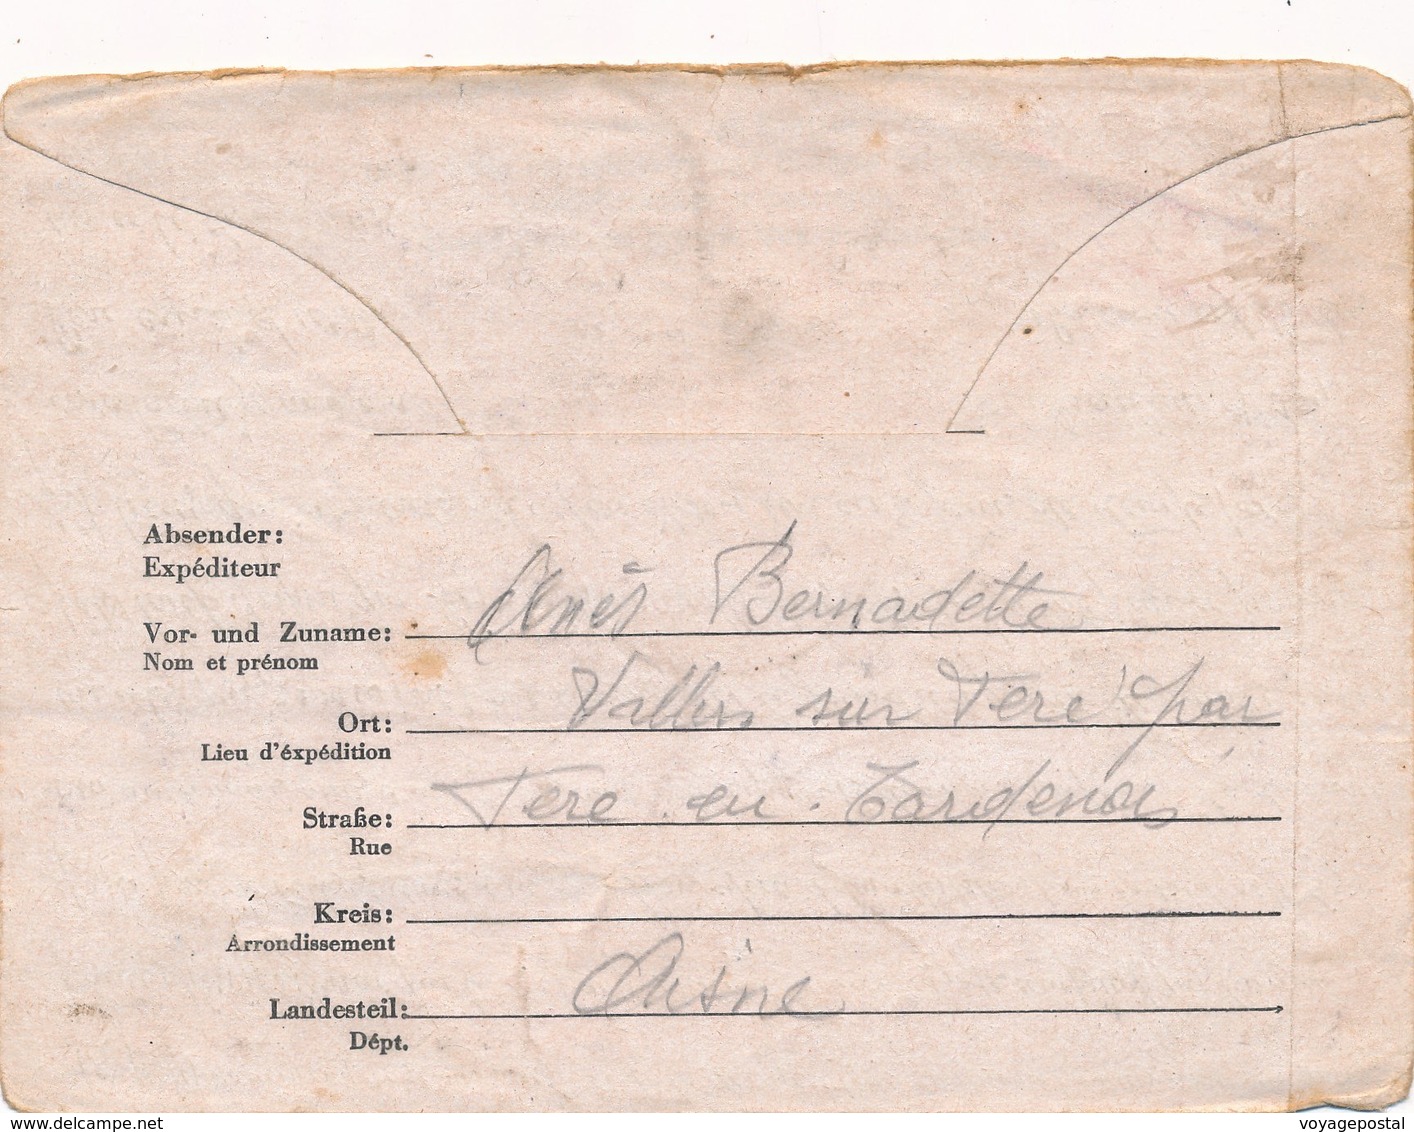 Absender:
Expéditeur
Vor- und Zuname: Anès Bernadette
Nom et prénom
Ort: Villers sur Fere par
Lieu d'éxpédition
Straße: Fere en Tardenois
Rue
Kreis:
Arrondissement
Landesteil: Aisne
Dépt.
www.delcampe.net
voyagepostal